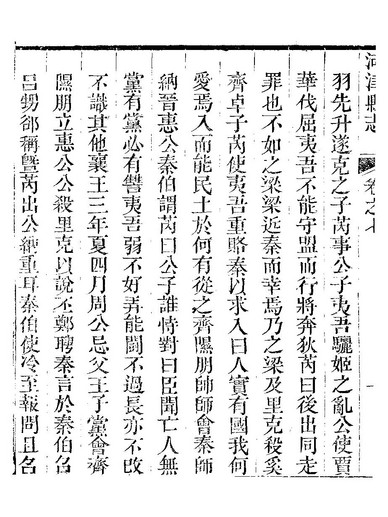 河津縣志
卷之七
一
羽先升遂克之子芮事公子夷吾驪姬之亂公使賈
華伐屈夷吾不能守盟而行將奔狄芮曰後出同走
罪也不如之梁梁近秦而幸焉乃之梁及里克殺奚
齊卓子芮使夷吾重賂秦以求入曰人實有國我何
愛焉入而能民土於何有從之齊隰朋帥師會秦師
納晉惠公秦伯謂芮曰公子誰恃對曰臣聞亡人無
黨有黨必有讐夷吾弱不好弄能鬪不過長亦不改
不識其他襄王三年夏四月周公忌父王子黨會齊
隰朋立惠公公殺里克以說丕鄭聘秦言於秦伯召
呂甥郤稱曁芮出公納重耳秦伯使冷至報問且召